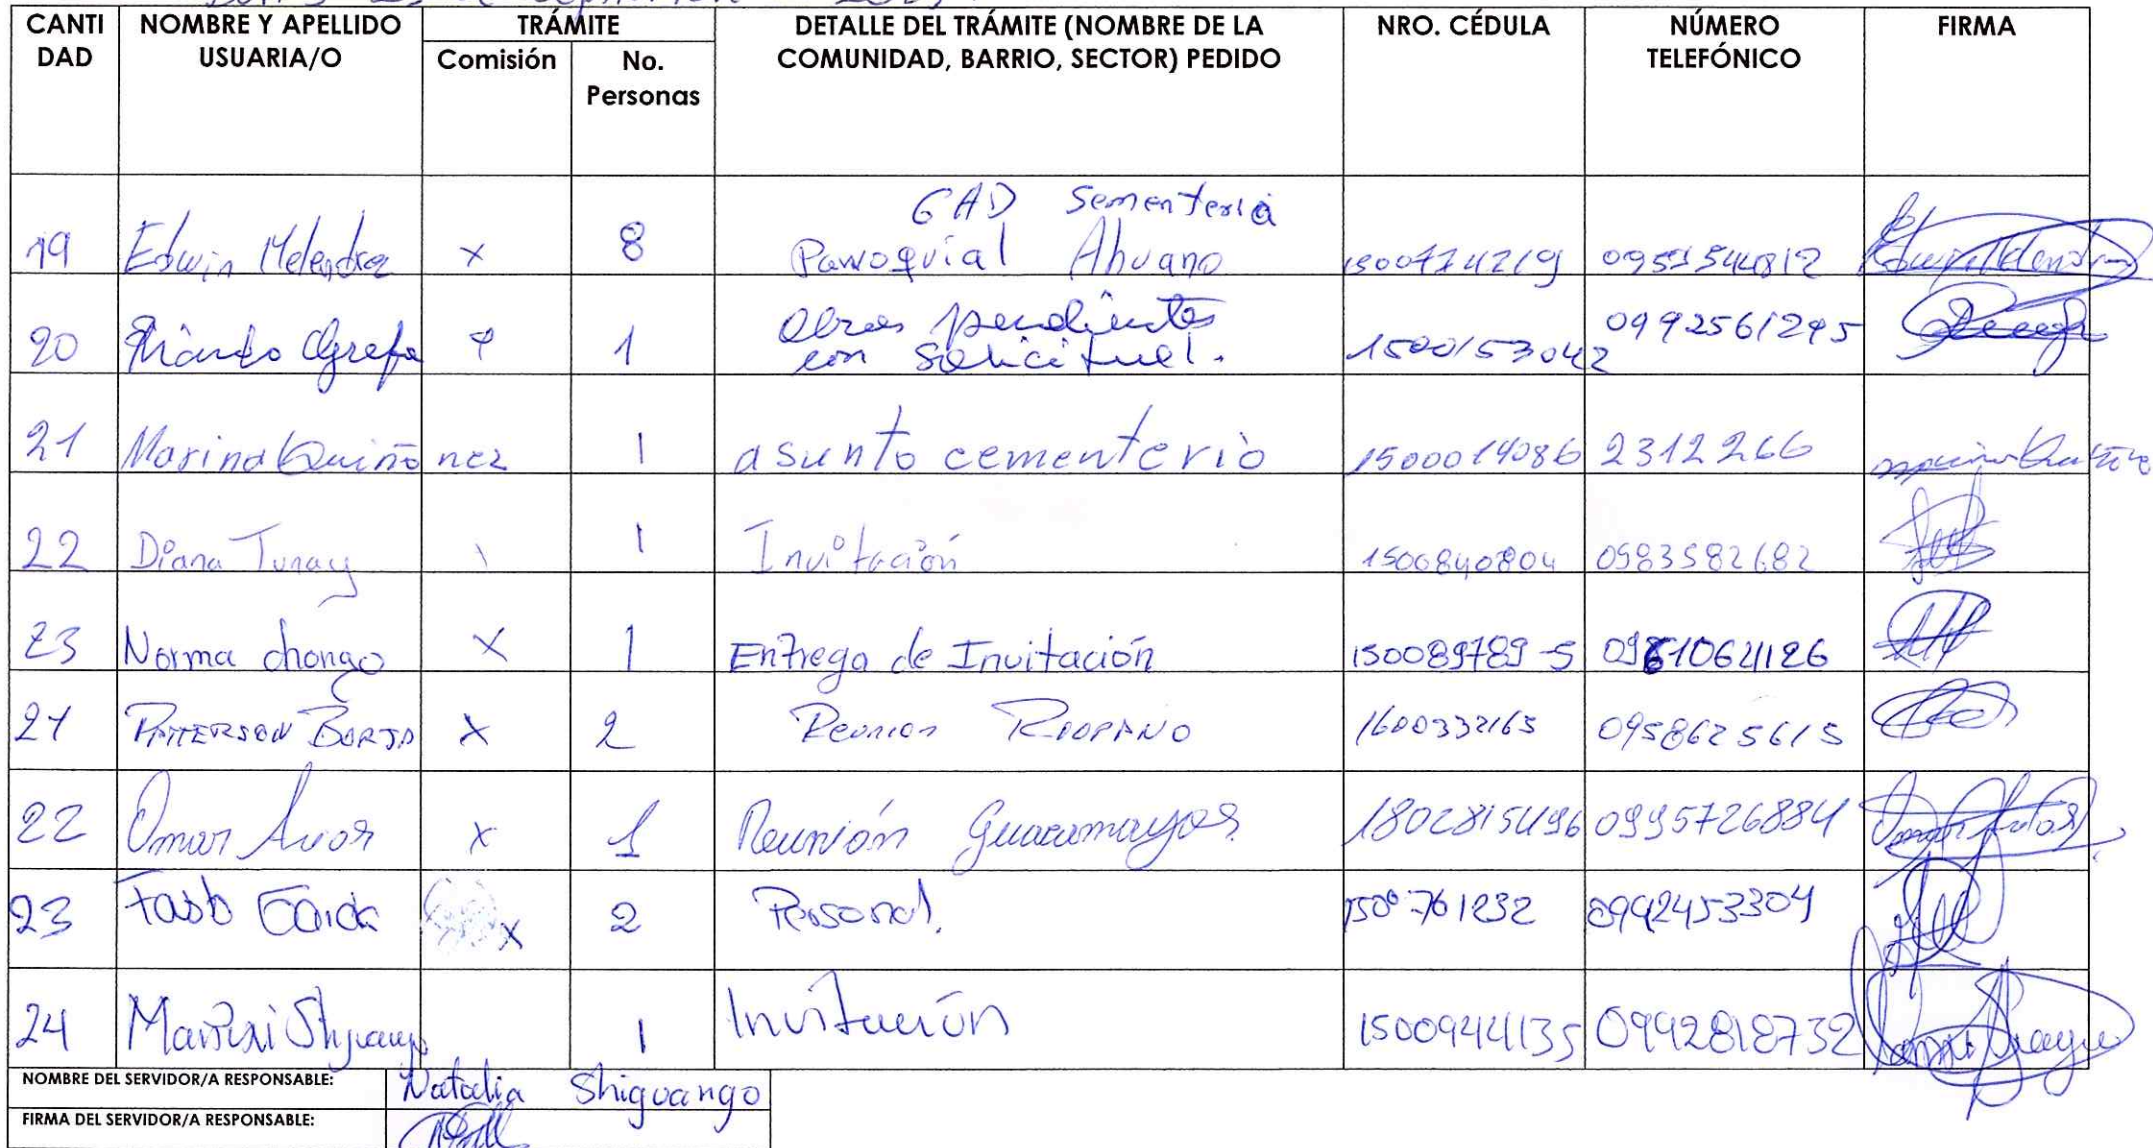 CANTI DAD NOMBRE Y APELLIDO USUARIA/O TRÁMITE DETALLE DEL TRÁMITE (NOMBRE DE LA COMUNIDAD, BARRIO, SECTOR) PEDIDO NRO. CÉDULA NÚMERO TELEFÓNICO FIRMA
Comisión No. Personas
19 Edwin Melendez x 8 GAD Sementeria Parroquial Ahuano 0951544812
20 Grefa 1 Obras pendientes con solicitud. 1500153042 0992561295
21 Marina Quiñonez 1 asunto cementerio 1500014086 2312266
22 Diana Tunay \ 1 Invitación 1500840804 0983582682
23 Norma chongo X 1 Entrega de Invitación 150089789-5
21 PATTERSON BORJA X 2 Reunion 1600332165 0958625615
22 Omar x 1 Reunión Guacamayos 1802815496 0995726884
23 x 2 Personal. 1500761232 0992453304
24 1 Invitación 1500944135 0992818732
NOMBRE DEL SERVIDOR/A RESPONSABLE: Natalia Shiguango
FIRMA DEL SERVIDOR/A RESPONSABLE: